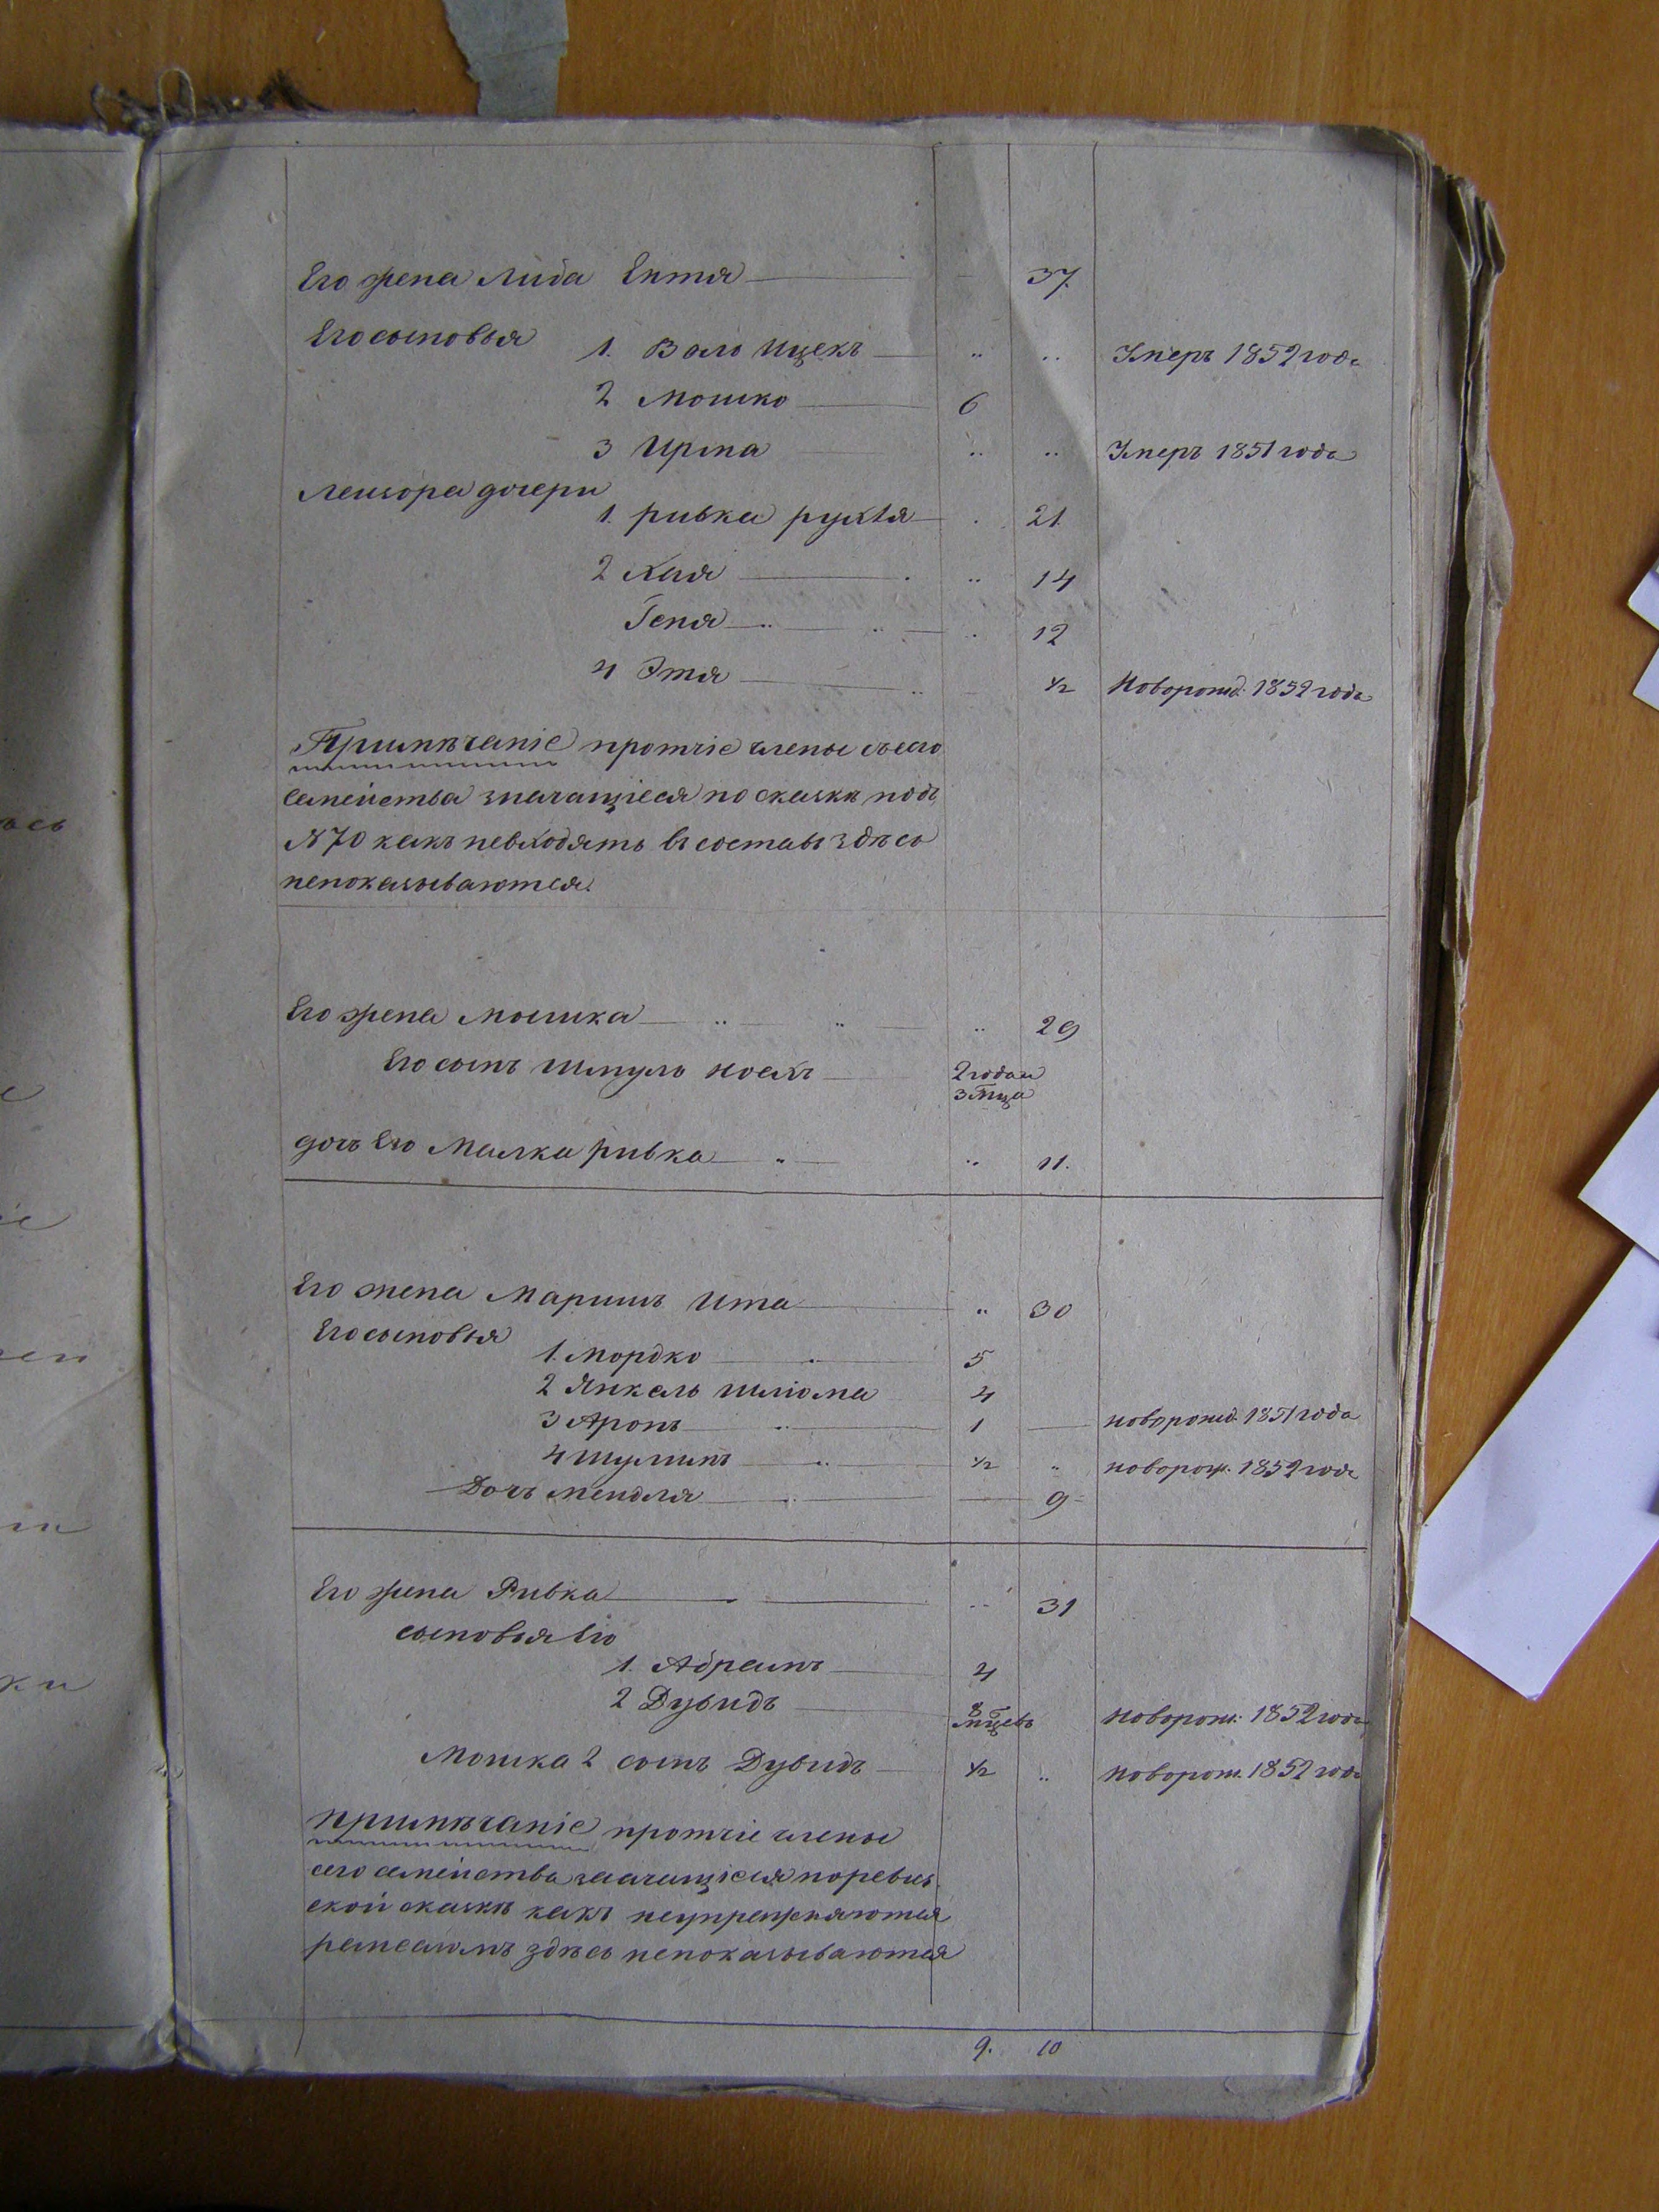 Его жена Либа Ентя 37.
Его сыновья
1. Воль Ицекъ " " Умеръ 1852 года
2 Мошко 6
3 Ирша " " Умеръ 1851 года
Лейзора дочери
1. Ривка рухля 21
2 Хая " 14
Геня " 12
4 Этя 1/2 Новорожд. 1852 года
Примѣчаніе протчіе члены съего
семейства значащіеся по сказкѣ подъ
№ 70 какъ невходятъ въ составъ здѣсь
непоказываются.
Его жена Мышка " 29
Его сынъ Шмуль Носхъ 2 года и
3 мца
дочь Его Малка Ривка " 11.
Его жена Маришъ Ита " 30
Его сыновья
1. Мордко 5
2 Янкель Шліома 4
3 Аронъ 1 новорожд. 1851 года
4 Шулимъ 1/2 " новорож. 1852 года
Дочь Мендля 9
Его жена Ривка " 31
сыновья Его
1. Абрамъ 4
2 Дувидъ 8 мцевъ новорож. 1852 года
Мошка 2 сынъ Дувидъ 1/2 " новорож. 1852 года
примѣчаніе протчіе члены
сего семейства значащіеся по ревиз-
ской сказкѣ какъ неупражняются
ремесломъ здѣсь непоказываются
9. 10